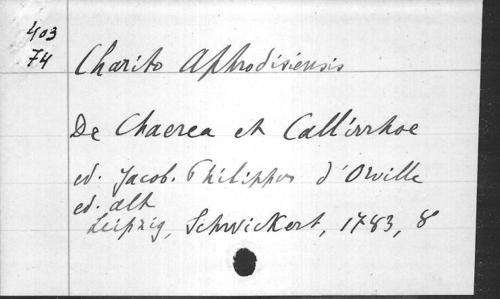 403
74
Charito Aphrodisiensis
De Chaerea et Callirrhoe
ed. Jacob. Philippus d'Orville
ed. alt
Leipzig, Schwickert, 1783, 8